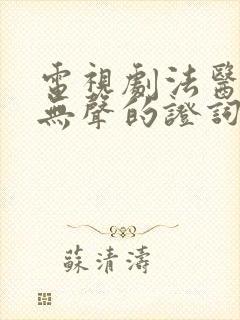 電視劇法醫
無聲的證詞
蘇清濤